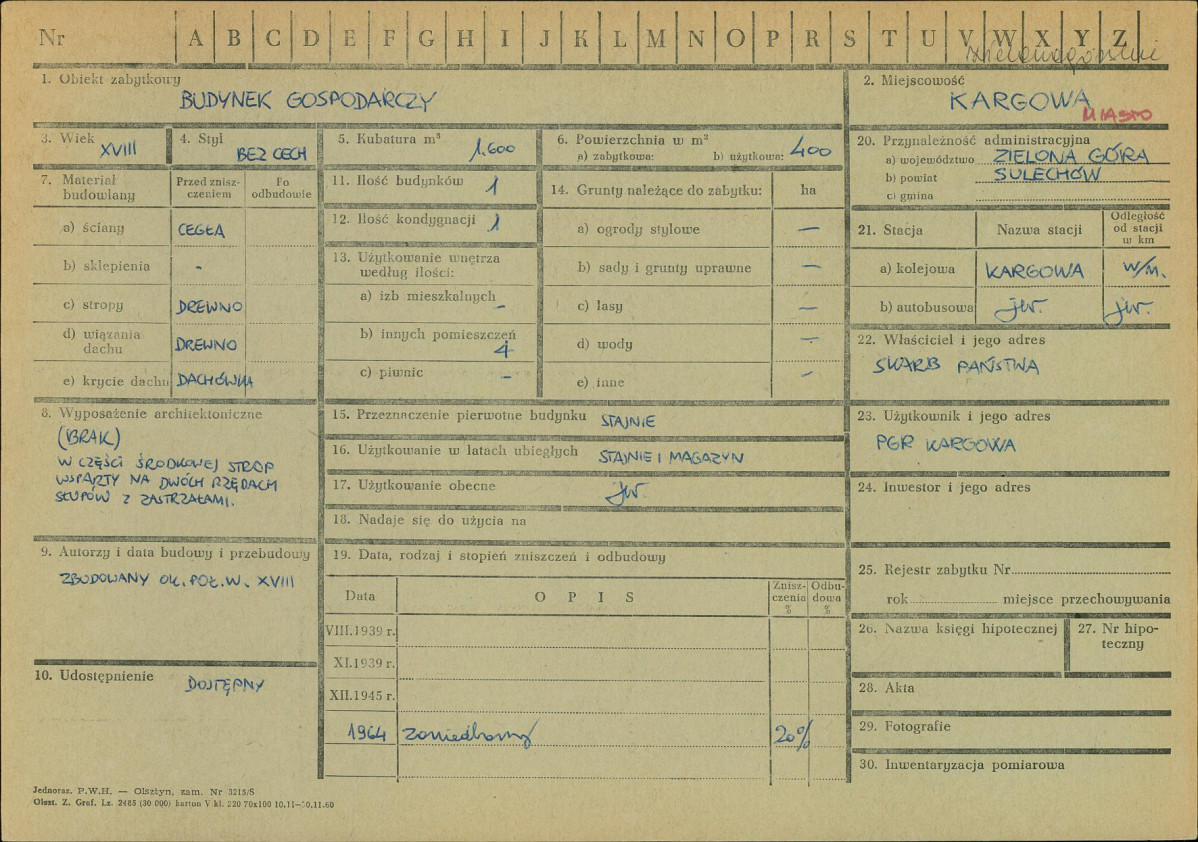 Nr A B C D E F G H I J K L M N O P R S T U V W X Y Z
1. Obiekt zabytkowy
BUDYNEK GOSPODARCZY
2. Miejscowość
KARGOWA
MIASTO
3. Wiek
XVIII
4. Styl
BEZ CECH
5. Kubatura m³
1.600
6. Powierzchnia w m²
a) zabytkowa: b) użytkowa: 400
20. Przynależność administracyjna
a) województwo ZIELONA GÓRA
b) powiat SULECHÓW
c) gmina
7. Materiał budowlany
Przed zniszczeniem
Po odbudowie
a) ściany CEGŁA
b) sklepienia -
c) stropy DREWNO
d) wiązania dachu DREWNO
e) krycie dachu DACHÓWKA
11. Ilość budynków 1
12. Ilość kondygnacji 1
13. Użytkowanie wnętrza
według ilości:
a) izb mieszkalnych –
b) innych pomieszczeń
4
c) piwnic –
14. Grunty należące do zabytku: ha
a) ogrody stylowe —
b) sady i grunty uprawne —
c) lasy —
d) wody —
e) inne –
21. Stacja
Nazwa stacji
Odległość
od stacji
w km
a) kolejowa KARGOWA W/M.
b) autobusowa jw. jw.
22. Właściciel i jego adres
SKARB PAŃSTWA
8. Wyposażenie architektoniczne
(BRAK)
W CZĘŚCI ŚRODKOWEJ STROP
WSPARTY NA DWÓCH RZĘDACH
SŁUPÓW Z ZASTRZAŁAMI.
15. Przeznaczenie pierwotne budynku STAJNIE
16. Użytkowanie w latach ubiegłych STAJNIE I MAGAZYN
17. Użytkowanie obecne jw.
18. Nadaje się do użycia na
23. Użytkownik i jego adres
PGR KARGOWA
24. Inwestor i jego adres
9. Autorzy i data budowy i przebudowy
ZBUDOWANY OK. POŁ. W. XVIII
10. Udostępnienie
DOSTĘPNY
19. Data, rodzaj i stopień zniszczeń i odbudowy
Data
O P I S
Znisz-
czenia
%
Odbu-
dowa
%
VIII.1939 r.
XI.1939 r.
XII.1945 r.
1964 zaniedbany 20%
25. Rejestr zabytku Nr
rok miejsce przechowywania
26. Nazwa księgi hipotecznej
27. Nr hipo-
teczny
28. Akta
29. Fotografie
30. Inwentaryzacja pomiarowa
Jednoraz. P.W.H. — Olsztyn, zam. Nr 3215/S
Olszt. Z. Graf. Lz. 2485 (30 000) karton V kl. 220 70x100 10.11—